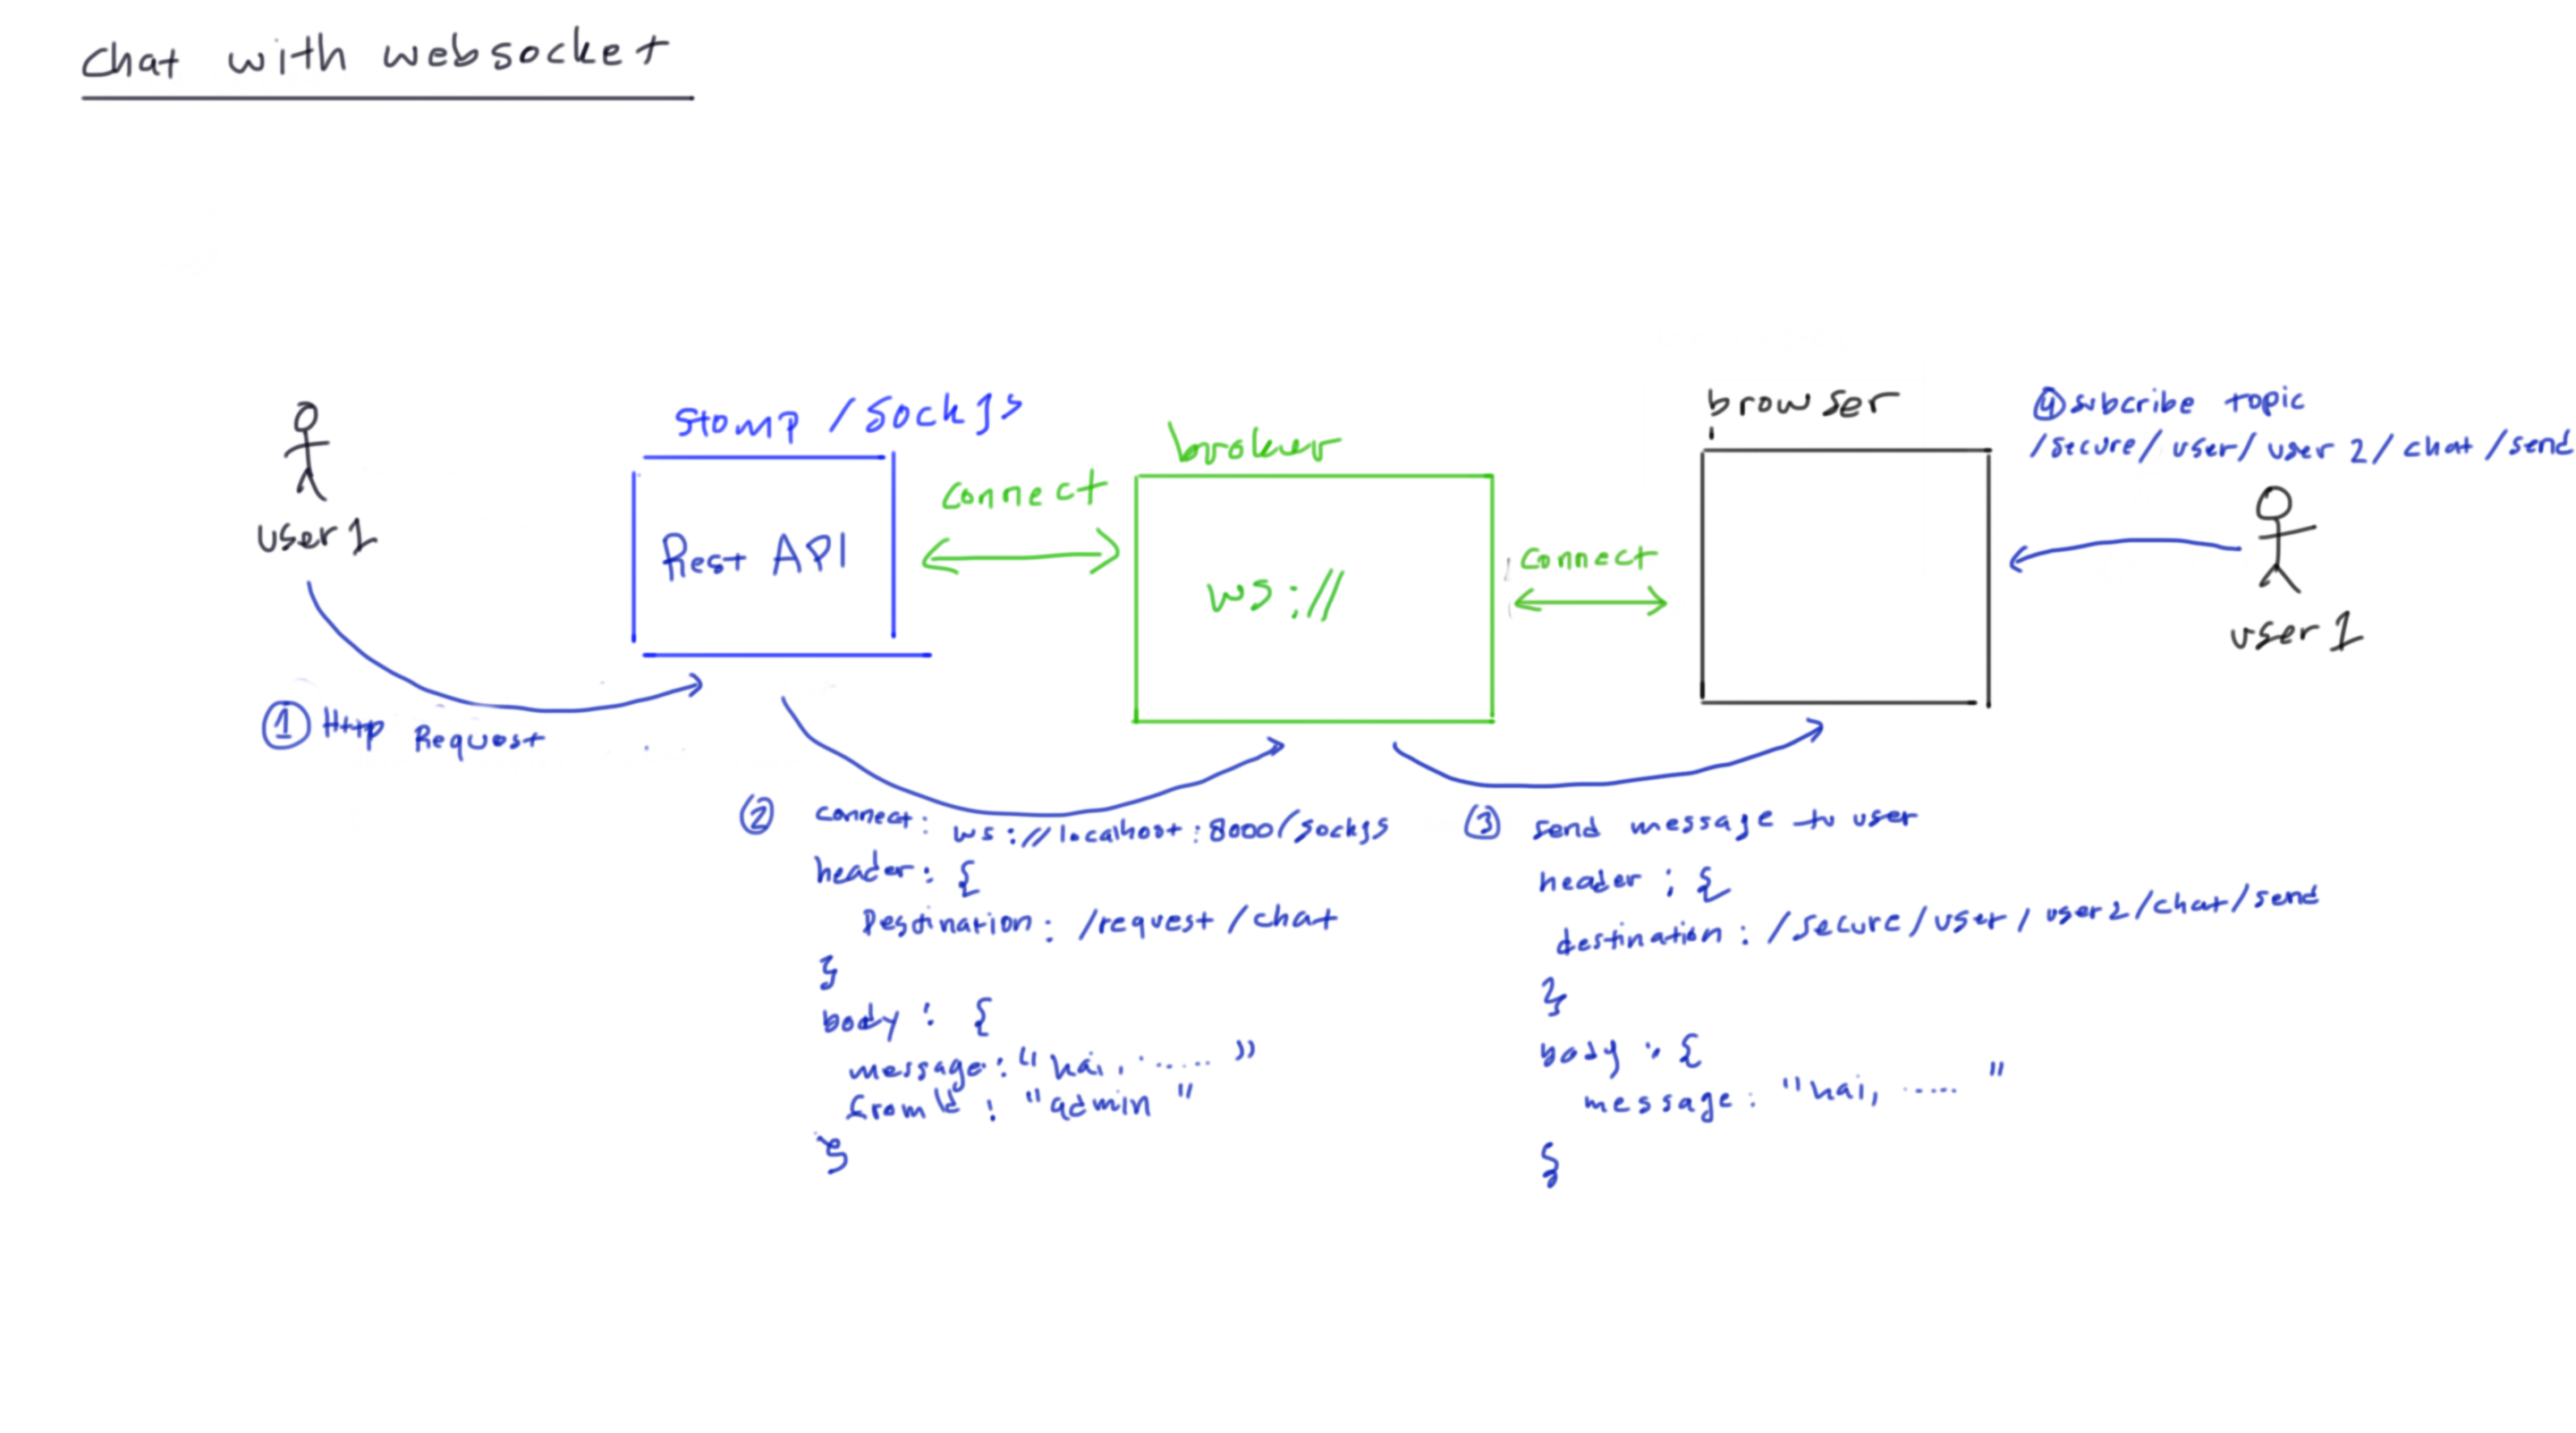 chat with websocket
stomp / SockJs
Rest API
connect
broker
ws://
connect
browser
④ subcribe topic
/secure/user/user2/chat/send
user1
user1
① Http Request
② connect: ws://localhost:8000/sockjs
header: {
Destination: /request/chat
}
body: {
message: "hai, ...... "
from Id : "admin"
}
③ send message to user
header : {
destination : /secure/user/user2/chat/send
}
body : {
message : "hai, ..... "
}